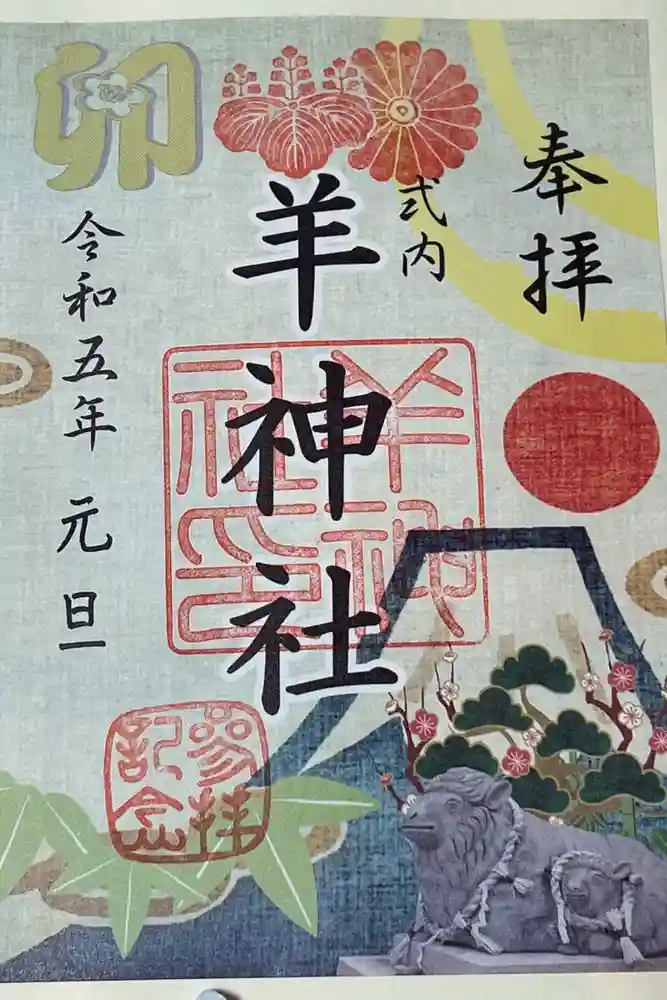 奉拝
式内
羊神社
羊神社印
卯
令和五年 元旦
参拝記念